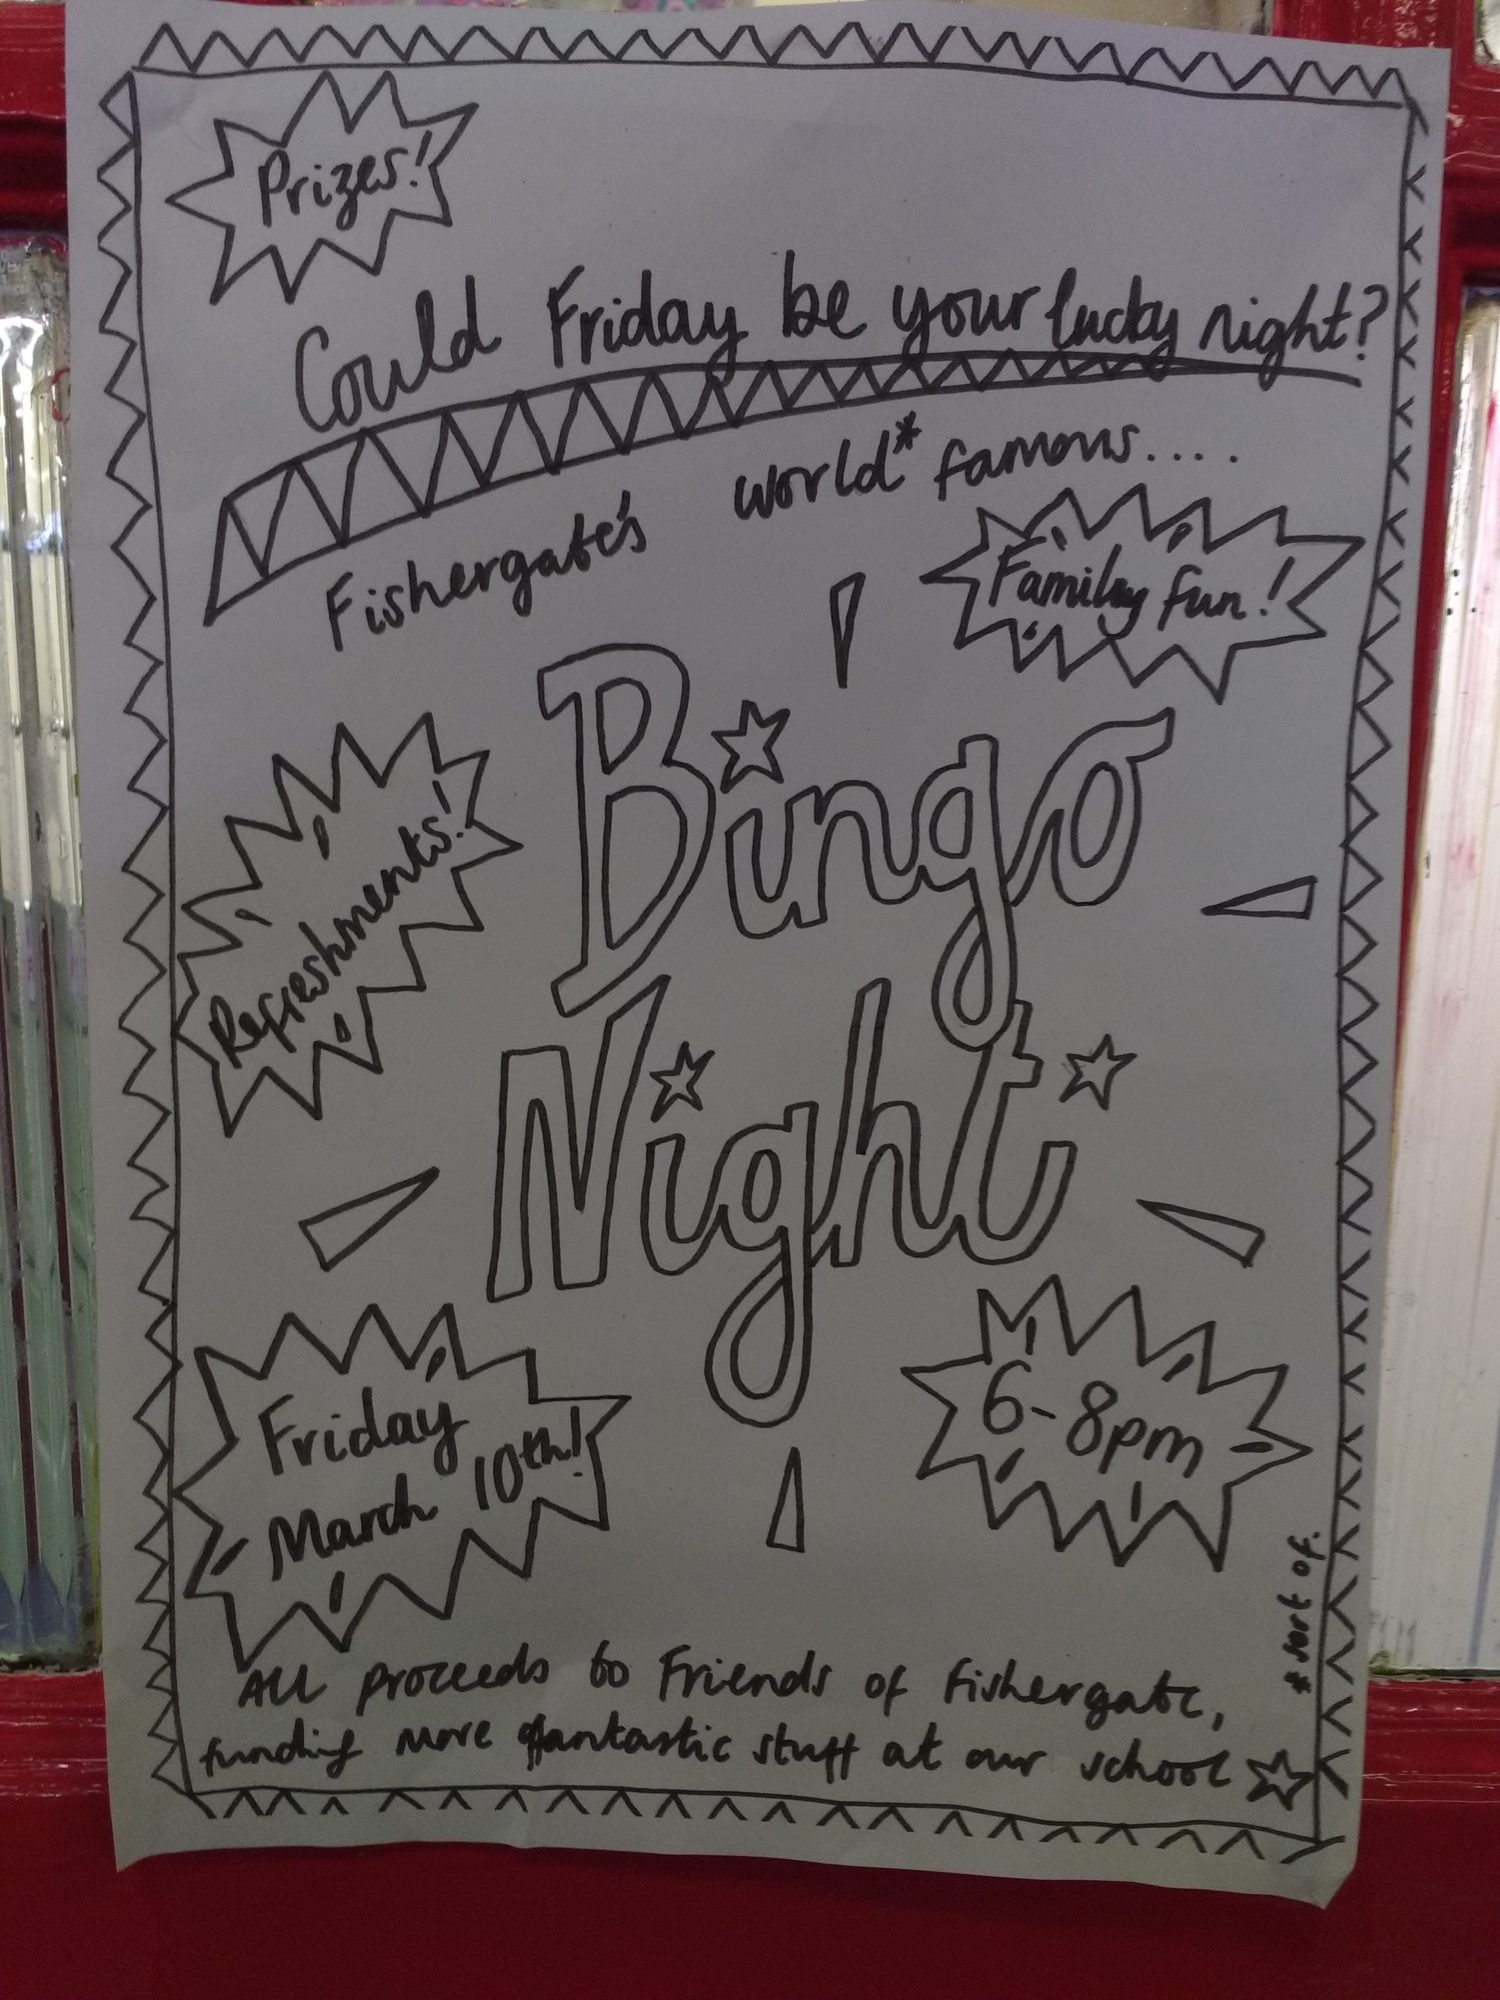 Prizes!
Could Friday be your lucky night?
Fishergate's world* famous....
Family fun!
Bingo
Refreshments!
Night
Friday
March 10th!
6-8pm
* sort of.
All proceeds to Friends of Fishergate,
funding more fantastic stuff at our school